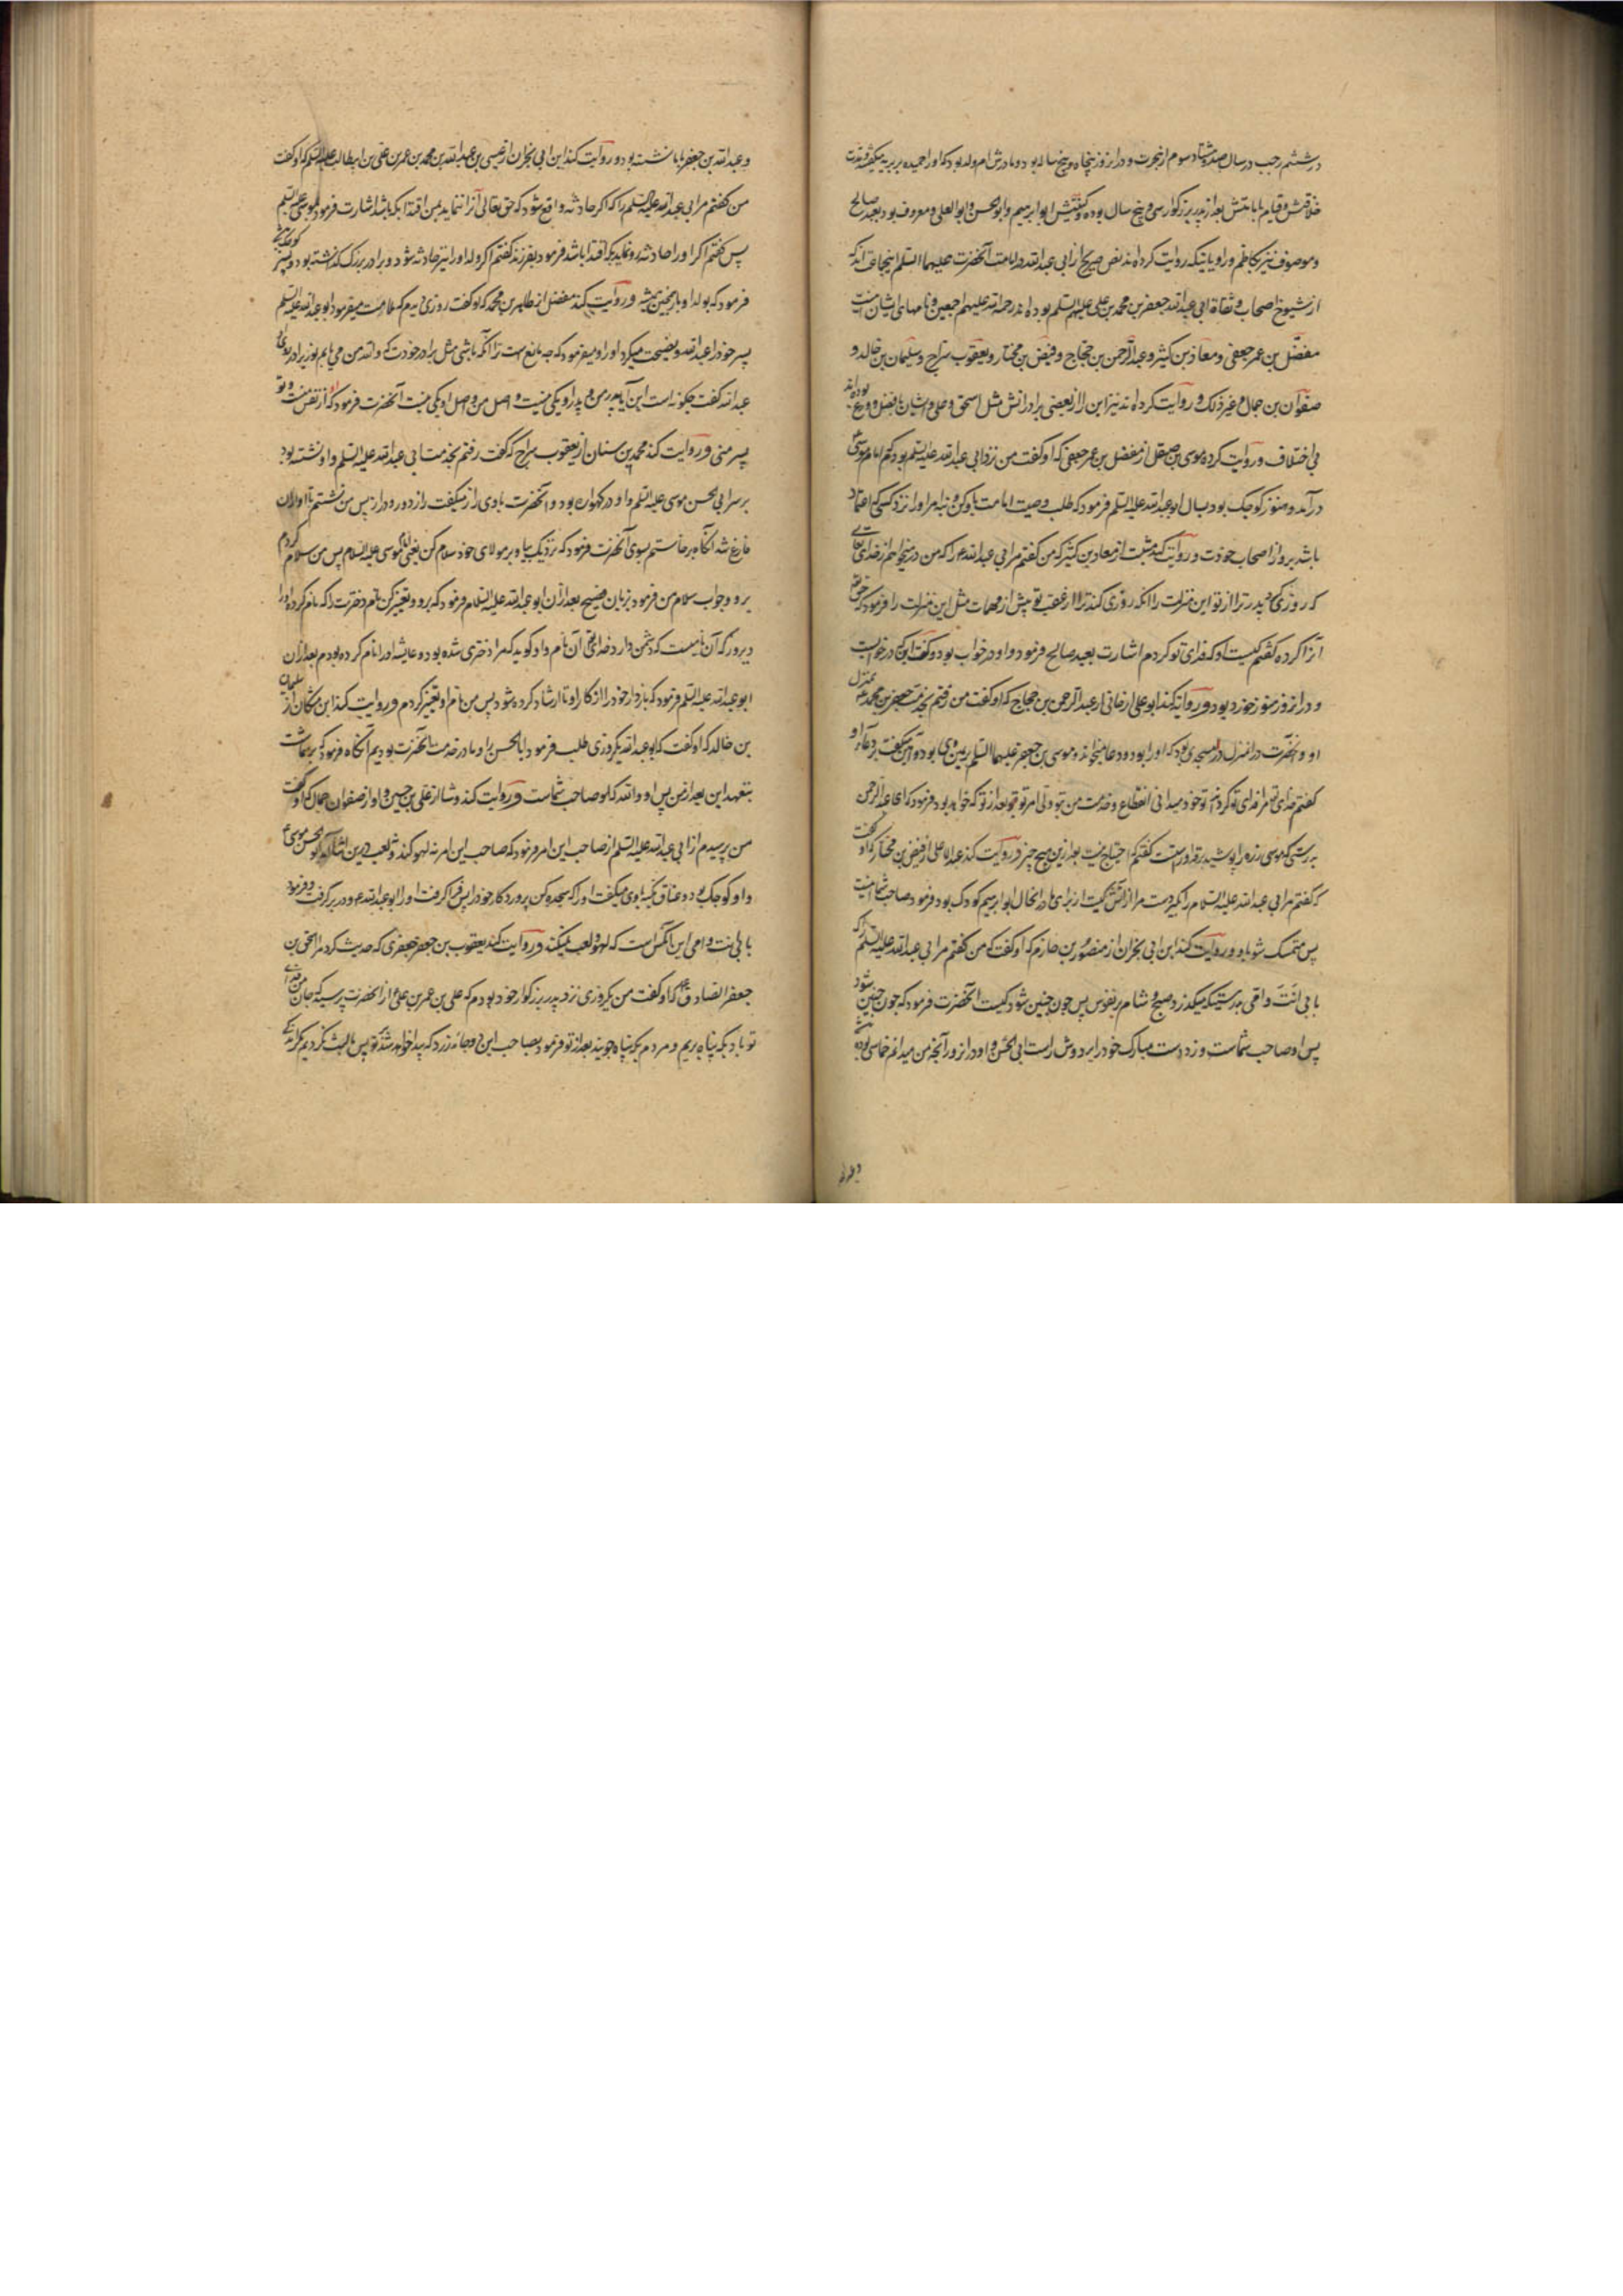 در ششم رجب در سال صد و هشتاد و سوم از هجرت و در آنروز پنجاه و پنج ساله بود و مادرش ام ولد بود که او را حمیده بربریه میگفتند و مدت
خلافتش و قیام بامامتش بعد از پدر بزرگوار سی و پنج سال بوده و کنیتش ابو ابرهیم و ابو الحسن و ابو العلی و معروف بود بعبد صالح
و موصوف نیز بکاظم و راویانیکه روایت کرده‌اند نص صریح از ابی عبد الله در امامت آنحضرت علیهما السلم اینجماعت‌اند که
از شیوخ اصحاب و ثقاة ابی عبد الله جعفر بن محمد بن علی علیهم السلم بوده‌اند رحمة الله علیهم اجمعین و نامهای ایشان اینست
مفضل بن عمر جعفی و معاذ بن کثیر و عبد الرحمن بن حجاج و فیض بن مختار و یعقوب سراج و سلیمان بن خالد و
صفوان بن جمال و غیر ذلک و روایت کرده‌اند نیز این را از بعضی برادرانش مثل اسحق و علی و ایشان با فضل و ورع بوده‌اند
بی اختلاف و روایت کرده موسی بن صیقل از مفضل بن عمر جعفی که او گفت من نزد ابی عبد الله علیه السلم بودم که امام موسی
درآمد و هنوز کوچک بود بسال ابو عبد الله علیه السلم فرمود که طلب وصیت امامت باو کن و بنه امر او را نزد کسی که اعتماد
باشد برو از اصحاب خودت و روایت کند مثبت از معاذ بن کثیر که من گفتم مر ابی عبد الله ع را که من درمیخواهم از خدای تعالی
که روزی کرد پدر ترا از تو این منزلت را آنکه روزی کند ترا از عقب تو پیش از ممات مثل این منزلت را فرمود که حق تعالی
آنرا کرده گفتم کیست او که فدای تو کردم اشارت بعبد صالح فرمود و او در خواب بود و گفت این که در خوابست
و در آنروز هنوز خورد بود و روایت کند ابو علی ارجانی از عبد الرحمن بن حجاج که او گفت من رفتم بخدمت جعفر بن محمد ع بمنزل
او و آنحضرت در منزل در مسجدی بود که او را بود و دعا میخواند و موسی بن جعفر علیهما السلم بر یمین وی بود و آمین میگفت بر دعاء او
گفتم خدای تعالی مرا فدای تو کرداند تو خود میدانی انقطاع و خدمت من بتو ولی امر تو بعد از تو که خواهد بود فرمود که ای عبد الرحمن
بدرستی که موسی زره را پوشید بر قد او راست گفتم که احتیاج نیست بعد ازین بهیچ چیز و روایت کند عبد الاعلی از فیض بن مختار که او گفت
که گفتم مر ابی عبد الله علیه السلام را بگیر دست مرا از آتش کیست از برای ما در آنحال ابو ابرهیم کودک بود فرمود صاحب شما اینست
پس متمسک شو باو و روایت کند ابن ابی نجران از منصور بن حازم که او گفت که من گفتم مر ابی عبد الله علیه السلم را که
بابی انت و امی بدرستیکه میگذرد صبح و شام بر نفوس پس چون چنین شود کیست آنحضرت فرمود که چون چنین شود
پس او صاحب شماست و زد دست مبارک خود را بر دوش راست ابی الحسن و او در آنروز آنچه من میدانم خماسی بوده
و عبد الله
و عبد الله بن جعفر با ما نشسته بود و روایت کند ابن ابی نجران از عیسی بن عبد الله بن محمد بن عمر بن علی بن ابیطالب علیه السلم که او گفت
من گفتم مر ابی عبد الله علیه السلم را که اگر حادثه واقع شود که حق تعالی آنرا ننماید بمن اقتدا بکه باشد اشارت فرمود بموسی علیه السلم
پس گفتم اگر او را حادثه رو نماید بکه اقتدا باشد فرمود بفرزندش گفتم اگر ولد او را نیز حادثه شود و برادر بزرگ گذاشته بود و پسر کوچک
فرمود که بولد او باز همچنین همیشه و روایت کند مفضل از طاهر بن محمد که او گفت روزی دیدم که ملامت میفرمود ابو عبد الله علیه السلم
پسر خود را عبد الله و نصیحت میکرد او را و میفرمود که چه مانع است ترا آنکه باشی مثل برادر خودت که و الله من می یابم نور برادر تو
عبد الله گفت چگونه است این آیا پدر من و پدر او یکی نیست و اصل من و اصل او یکی نیست آنحضرت فرمود که او از نفس منست و تو
پسر منی و روایت کند محمد بن سنان از یعقوب سراج که گفت رفتم بخدمت ابی عبد الله علیه السلم و او نشسته بود
بر سر ابی الحسن موسی علیه السلم و او در گهواره بود و آنحضرت با وی راز میگفت راز دور و دراز پس من نشستم تا او از آن
فارغ شد آنگاه برخاستم بسوی آنحضرت فرمود که نزدیک بیا و بر مولای خود سلام کن یعنی امام موسی علیه السلام پس من سلام کردم
برو و جواب سلام من فرمود بزبان فصیح بعد از آن ابو عبد الله علیه السلام فرمود که برو و تغییر کن نام دخترت را که نام کرده او را
دیروز که آن نامیست که دشمن دارد خدایتعالی آن نام را و گوید که مرا دختری شده بود و عایشه او را نام کرده بودم بعد از آن
ابو عبد الله علیه السلم فرمود که باز دار خود را از کار او تا ارشاد کرده شود پس من نام او تغییر کردم و روایت کند ابن مسکان از سلیمان
بن خالد که او گفت که ابو عبد الله یکروزی طلب فرمود ابا الحسن را و ما در خدمت آنحضرت بودیم آنگاه فرمود که بر شماست
بتعهد این بعد از من پس او و الله که او صاحب شماست و روایت کند وشا از علی بن حسین و او از صفوان جمال که او گفت
من پرسیدم از ابی عبد الله علیه السلم از صاحب این امر فرمود که صاحب این امر نه لهو کند و نه لعب درین اثنا آمد ابو الحسن موسی ع
و او کوچک بود و عناق مکیه با وی میگفت او را که سجده کن پروردگار خود را پس فرا گرفت او را ابو عبد الله ع و در بر گرفت و فرمود
بابی انت و امی این آنکس است که لهو و لعب نمیکند و روایت کند یعقوب بن جعفر جعفری که حدیث کرد مرا اسحق بن
جعفر الصادق ع که او گفت من یکروزی نزد پدر بزرگوار خود بودم که علی بن عمر بن علی از آنحضرت پرسید که جان من فدای
تو باد بکه پناه بریم و مردم بکه پناه جویند بعد از تو فرمود بصاحب این دو جامه زرد که پیدا خواهد شد بتو پس ما لبث نکردیم مگر اندکی